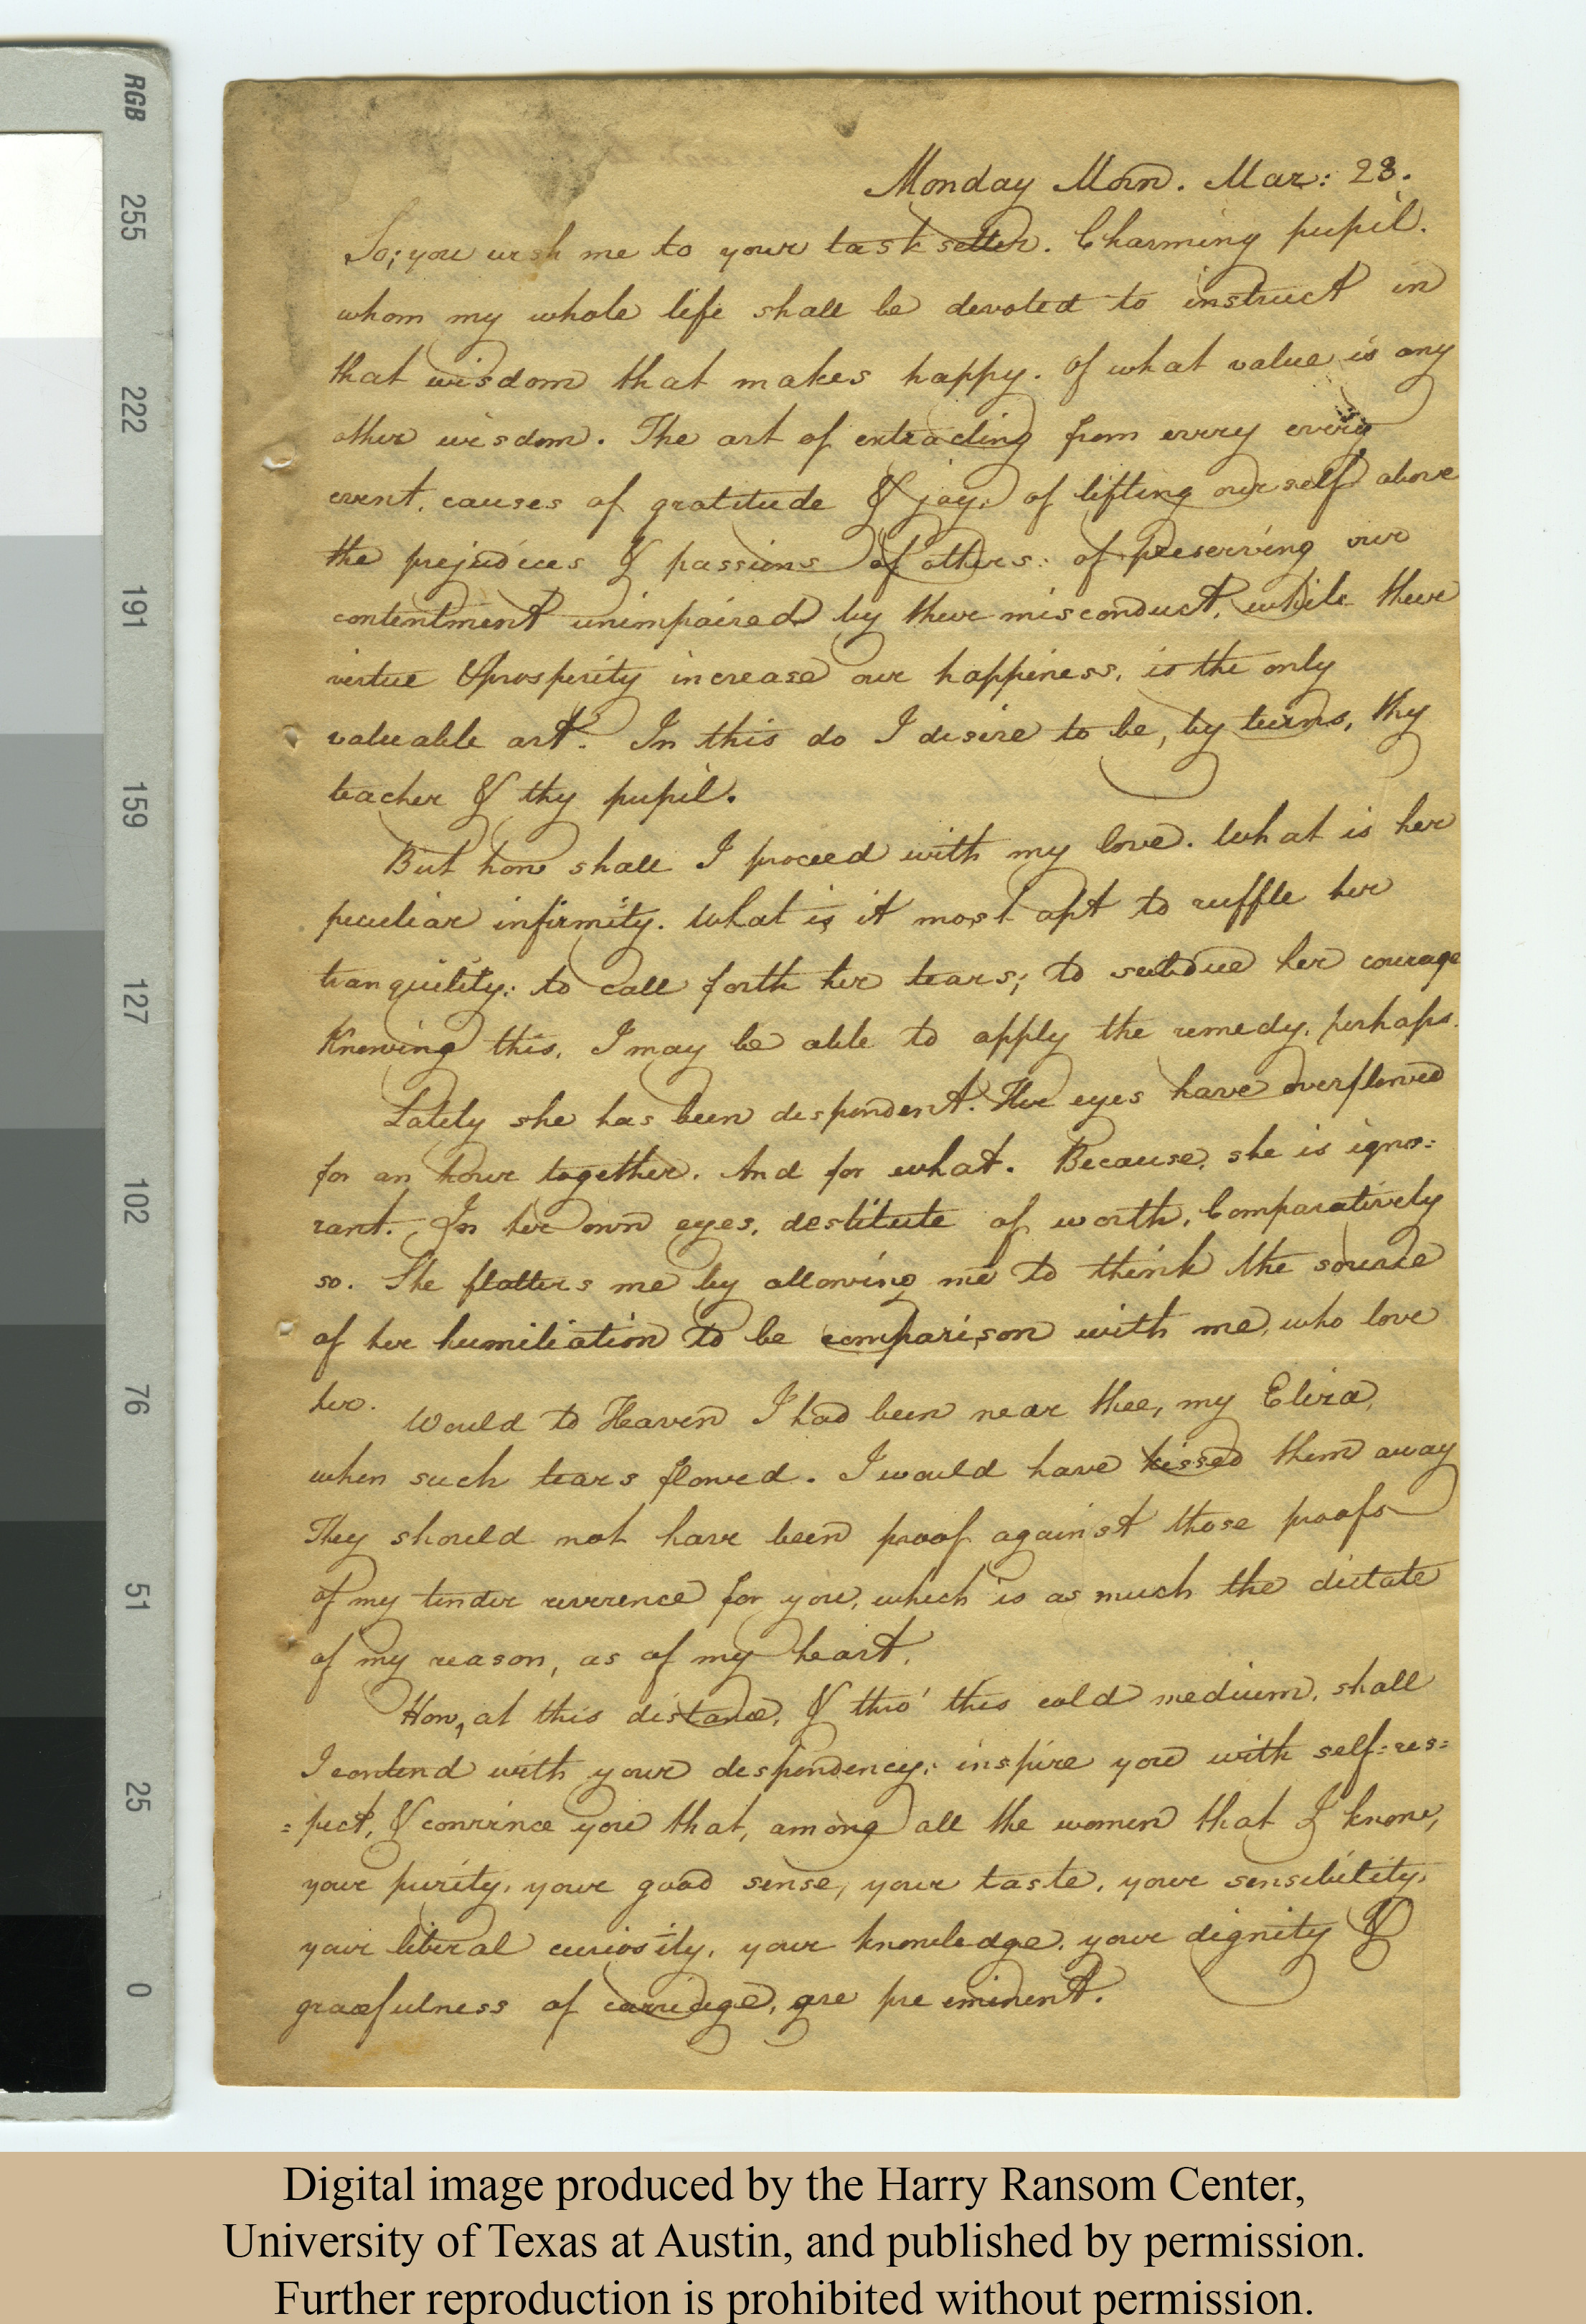 RGB
255
222
191
159
127
102
76
51
25
0
Monday Morn. Mar: 28.
So; you wish me to your task setter. Charming pupil.
whom my whole life shall be devoted to instruct in
that wisdom that makes happy. Of what value is any
other wisdom. The art of extracting from every every
event, causes of gratitude & joy; of lifting ourself above
the prejudices & passions of others: of preserving our
contentment unimpaired by their misconduct, while their
virtue & prosperity increase our happiness, is the only
valuable art. In this do I desire to be, by turns, thy
teacher & thy pupil.
But how shall I proceed with my love. What is her
peculiar infirmity. What is it most apt to ruffle her
tranquility: to call forth her tears; to subdue her courage
Knowing this, I may be able to apply the remedy, perhaps.
Lately she has been despondent. Her eyes have overflowed
for an hour together. And for what. Because, she is igno=
rant. In her own eyes, destitute of worth, Comparatively
so. She flatters me by allowing me to think the source
of her humiliation to be comparison with me, who love
her.
Would to Heaven I had been near thee, my Eliza,
when such tears flowed. I would have kissed them away
They should not have been proof against those proofs
of my tender reverence for you, which is as much the dictate
of my reason, as of my heart.
How, at this distance, & thro' this cold medium, shall
I contend with your despondency; inspire you with self=res=
=pect, & convince you that, among all the women that I know,
your purity, your good sense, your taste, your sensibility,
your liberal curiosity, your knowledge, your dignity &
gracefulness of carriage, are pre eminent.
Digital image produced by the Harry Ransom Center,
University of Texas at Austin, and published by permission.
Further reproduction is prohibited without permission.